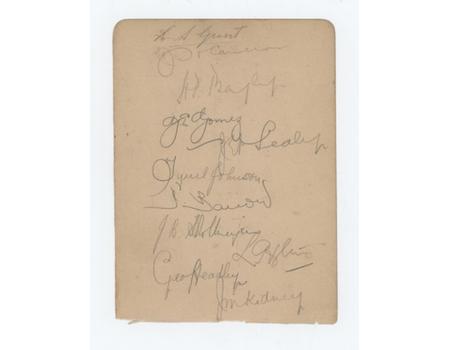 R S Grant
J H Cameron
H P Bayley
G E Gomez
J E D Sealy
Tyrell Johnson
I. Barrow
J. B. Stollmeyer
L G Hylton
Geo Headley
J M Kidney